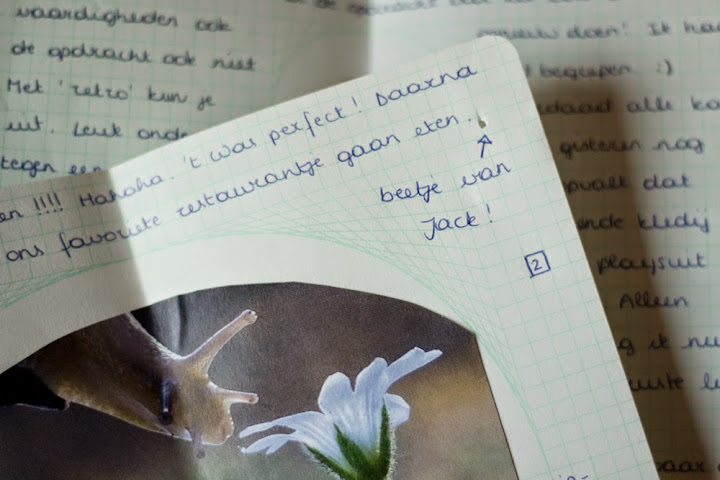 waardigheden ook
de opdracht ook niet
Met 'retro' kun je
uit. Leuk onde
tegen een
en !!!! Hahaha. 't was perfect! Daarna
ons favoriete restaurantje gaan eten.
beetje van
Jack!
2
nieuw doen! Ik ha
begrepen :)
alle ka
gisteren nog
dat
ende kledij
playsuit
Alleen
g ik nu